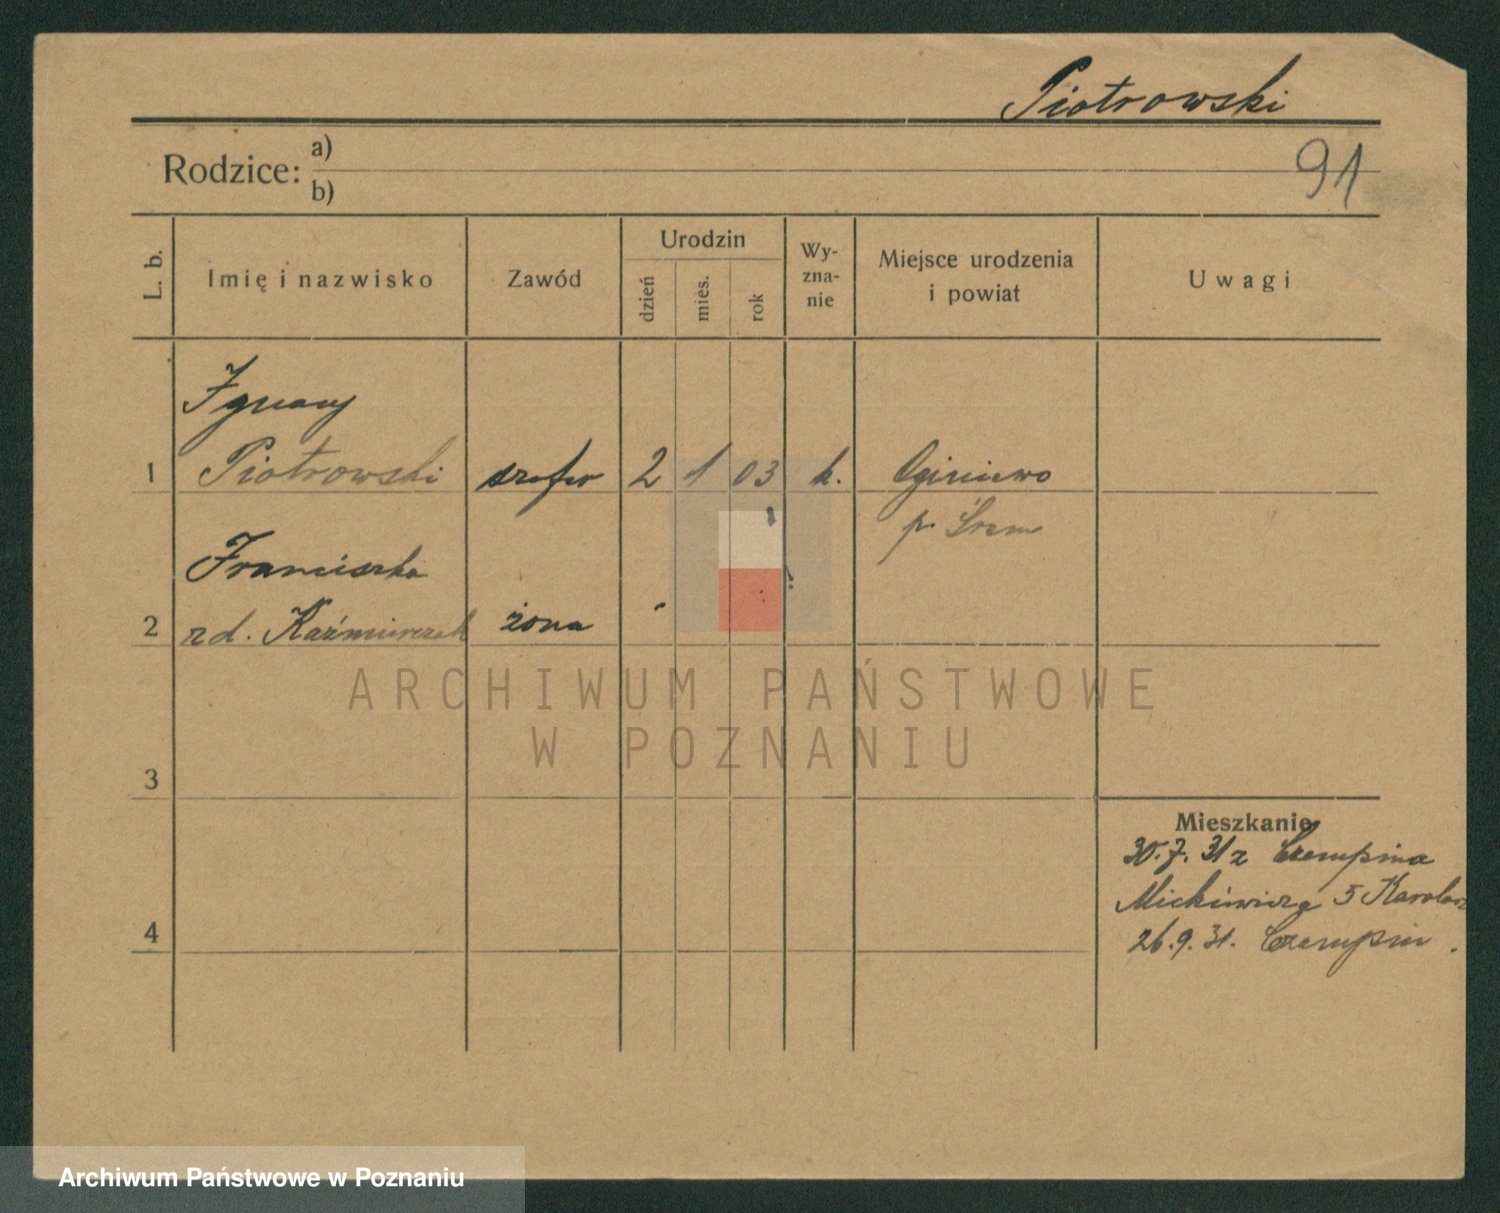 Piotrowski
Rodzice: a)
b)
91
L. b.
Imię i nazwisko
Zawód
Urodzin
dzień
mies.
rok
Wy-
zna-
nie
Miejsce urodzenia
i powiat
Uwagi
Ignacy
1 Piotrowski szofer 2 1 03 k. Oginiewo
p. Śrem
Franciszka
2 zd. Kaźmierczak żona
3
4
Mieszkanie
30.7.31 z Czempinia
Mickiewicza 5
26.9.31. Czempiń.
ARCHIWUM PAŃSTWOWE
W POZNANIU
Archiwum Państwowe w Poznaniu